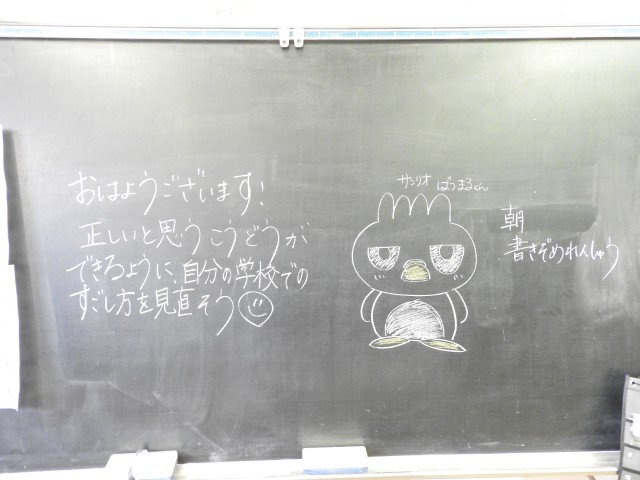 おはようございます!
正しいと思うこうどうが
できるように、自分の学校での
すごし方を見直そう
サンリオ ばつまるくん
朝
書きぞめれんしゅう